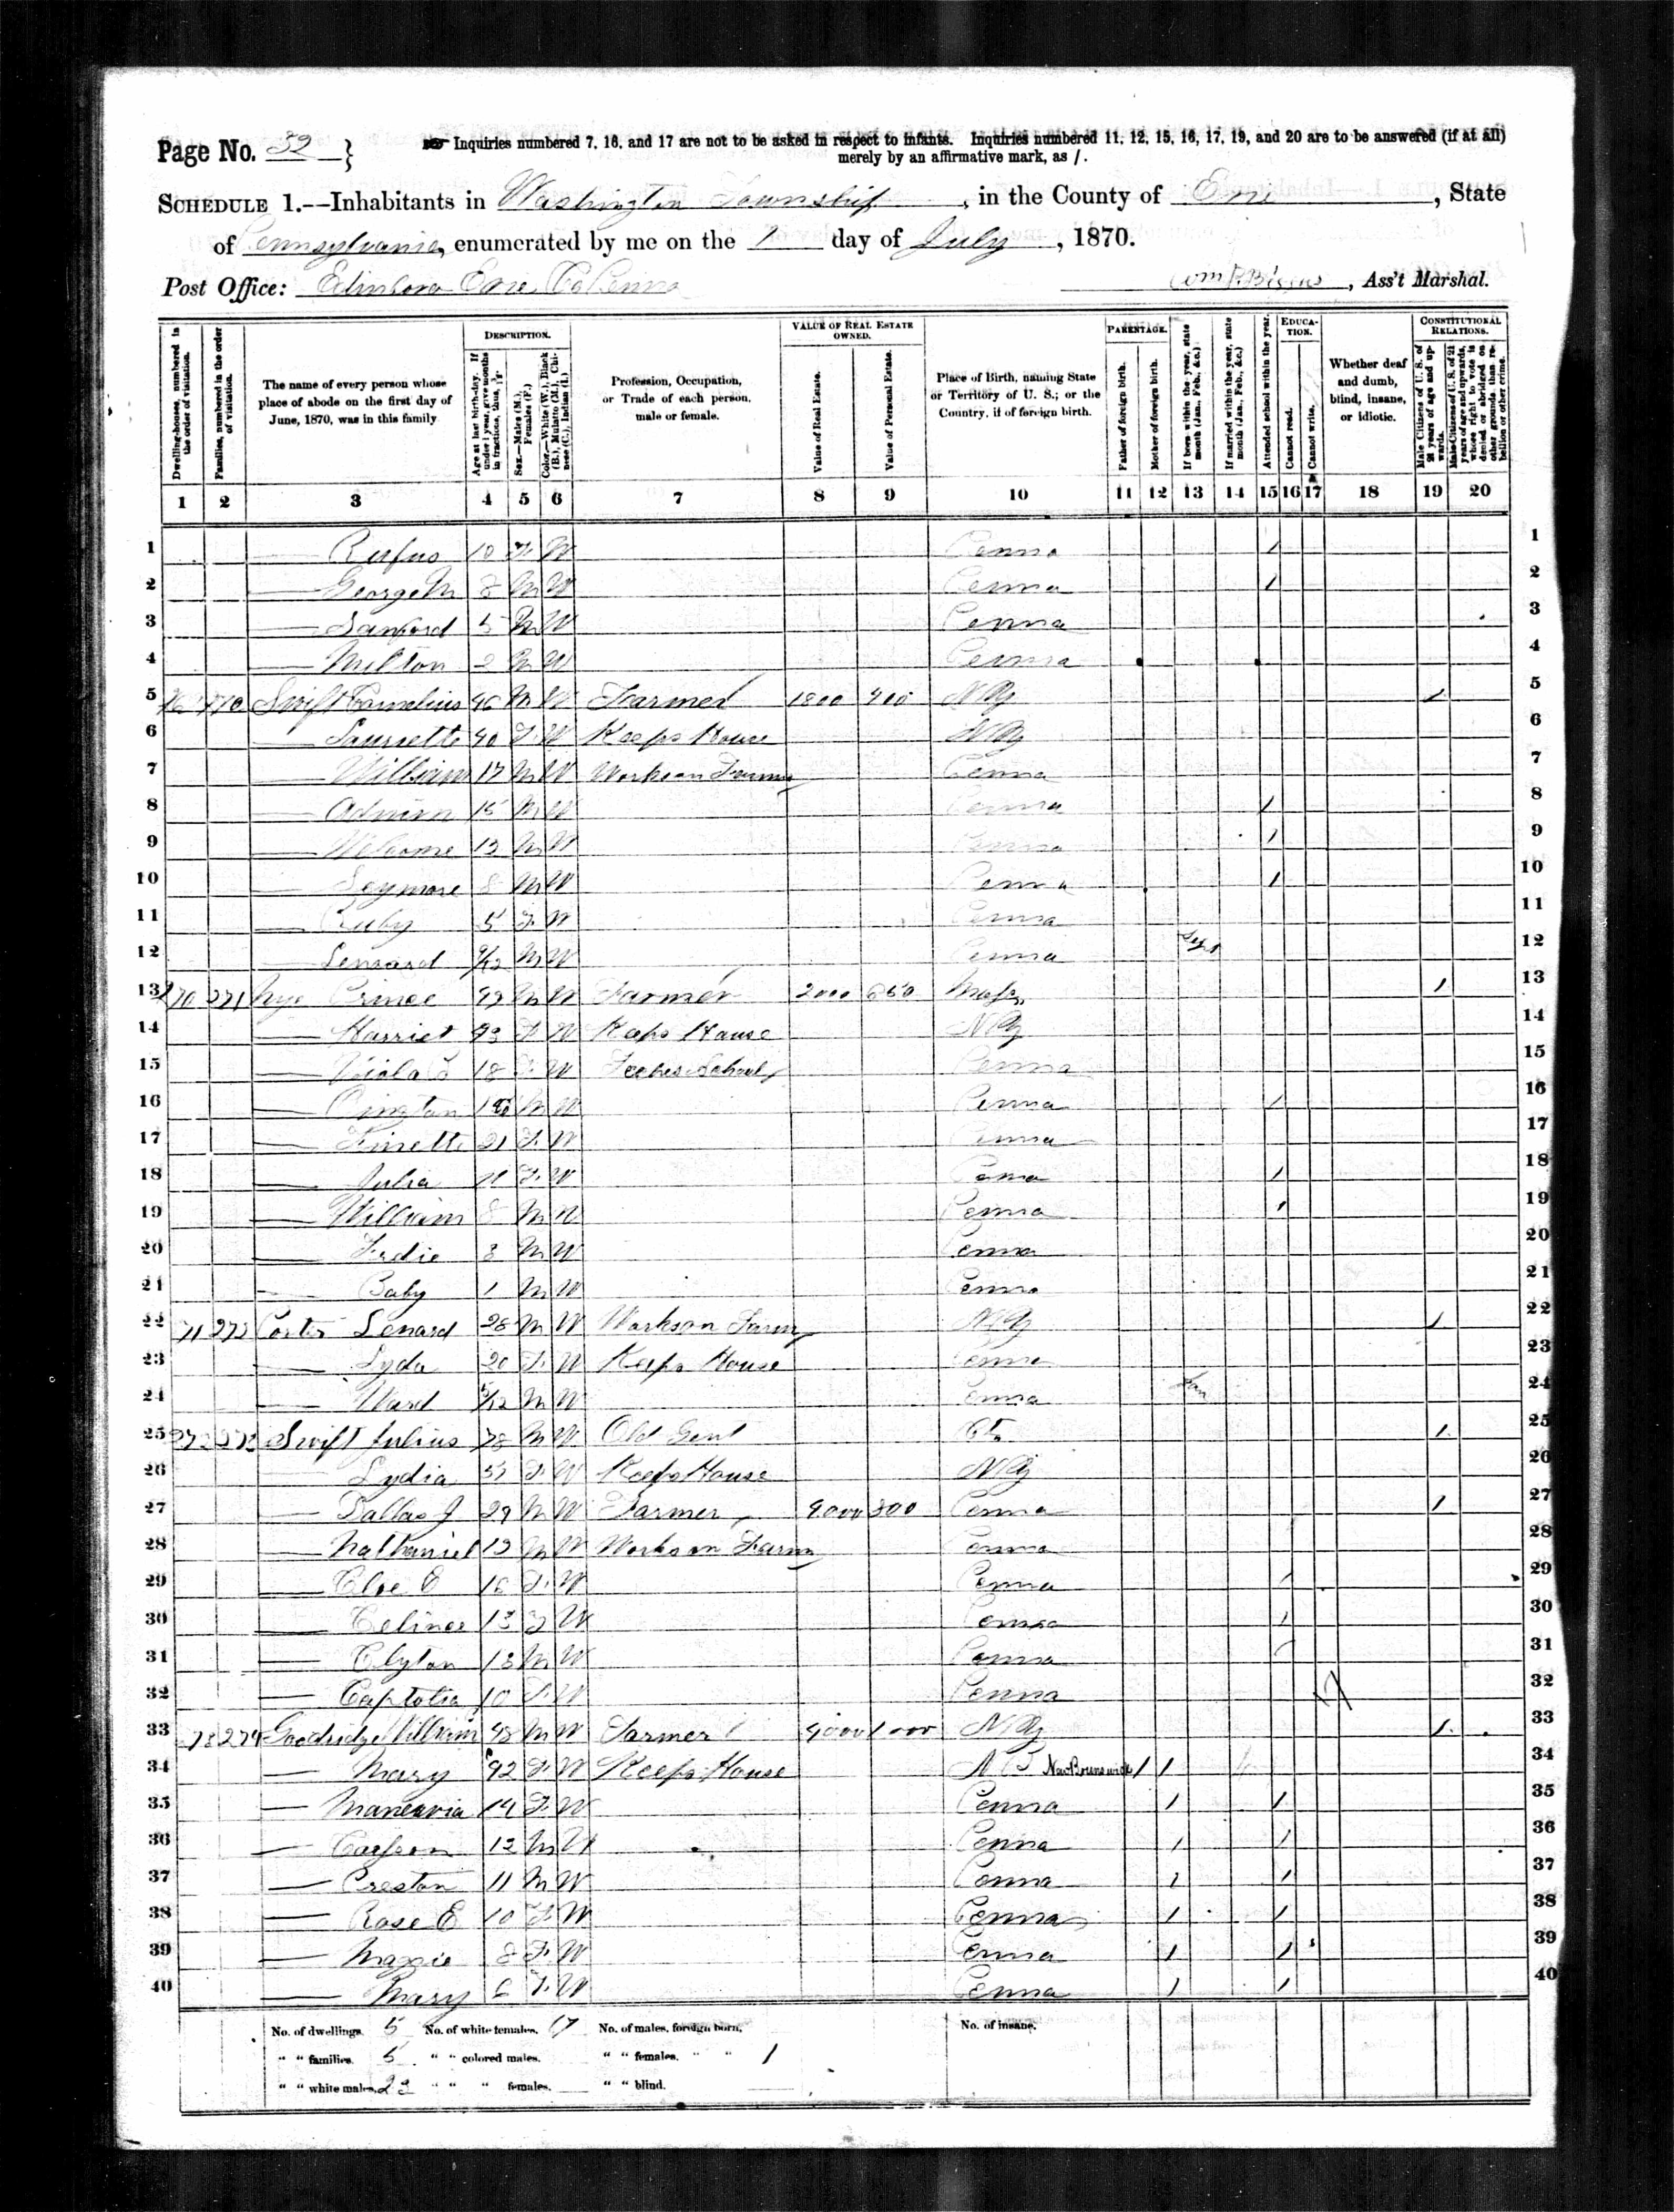 Page No. 32 }
Inquiries numbered 7, 16, and 17 are not to be asked in respect to infants. Inquiries numbered 11, 12, 15, 16, 17, 19, and 20 are to be answered (if at all)
merely by an affirmative mark, as /.
SCHEDULE 1.—Inhabitants in Washington Township, in the County of Erie, State
of Pennsylvania, enumerated by me on the 1 day of July, 1870.
Post Office: Edinboro Erie Co Penna , Ass't Marshal.
Dwelling-houses, numbered in the order of visitation.
Families, numbered in the order of visitation.
The name of every person whose place of abode on the first day of June, 1870, was in this family
DESCRIPTION.
Age at last birth-day. If under 1 year, give months in fractions, thus, 3/12.
Sex.—Males (M.), Females (F.)
Color.—White (W.), Black (B.), Mulatto (M.), Chinese (C.), Indian (I.)
Profession, Occupation, or Trade of each person, male or female.
VALUE OF REAL ESTATE OWNED.
Value of Real Estate.
Value of Personal Estate.
Place of Birth, naming State or Territory of U. S.; or the Country, if of foreign birth.
PARENTAGE.
Father of foreign birth.
Mother of foreign birth.
If born within the year, state month (Jan., Feb., &c.)
If married within the year, state month (Jan., Feb., &c.)
Attended school within the year.
EDUCATION.
Cannot read.
Cannot write.
Whether deaf and dumb, blind, insane, or idiotic.
CONSTITUTIONAL RELATIONS.
Male Citizens of U. S. of 21 years of age and upwards.
Male Citizens of U. S. of 21 years of age and upwards, whose right to vote is denied or abridged on other grounds than rebellion or other crime.
1 2 3 4 5 6 7 8 9 10 11 12 13 14 15 16 17 18 19 20
1 — Rufus 10 F W Penna / 1
2 — George M 8 M W Penna / 2
3 — Sanford 5 M W Penna 3
4 — Milton 2 M W Penna 4
5 Swift Cornelius 46 M W Farmer 1800 400 NY / 5
6 — 40 F W Keeps House NY 6
7 — William 17 M W Works on Farm Penna 7
8 — 15 M W Penna / 8
9 — Welcome 13 M W Penna / 9
10 — Seymore 8 M W Penna / 10
11 — Ruby 5 F W Penna 11
12 — Lenard 9/12 M W Penna Sept 12
13 270 271 Nye Prince 49 M W Farmer 2000 650 Mass / 13
14 — Harriet 43 F W Keeps House NY 14
15 — Viola L 18 F W Teches School Penna 15
16 — M W Penna / 16
17 — 21 F W Penna 17
18 — Julia 11 F W Penna / 18
19 — William 8 M W Penna / 19
20 — Fredie 3 M W Penna 20
21 — Baby 1 M W Penna 21
22 71 272 Lenard 28 M W Works on Farm NY / 22
23 — Lyda 20 F W Keeps House Penna 23
24 — Ward 5/12 M W Penna Jan 24
25 272 273 Swift Julius 78 M W Old Gent Ct. / 25
26 — Lydia 57 F W Keeps House NY 26
27 — Dallas J 29 M W Farmer 4000 300 Penna / 27
28 — Nathaniel 19 M W Works on Farm Penna 28
29 — Cloe E 16 F W Penna / 29
30 — Celinee 13 F W Penna / 30
31 — Clyton 13 M W Penna / 31
32 — Captolia 10 F W Penna 32
33 73 274 Goodridge William 48 M W Farmer 4000 1000 NY / 33
34 — Mary 42 F W Keeps House N B New Brunswick / / 34
35 — 14 F W Penna / / 35
36 — 12 M W Penna / / 36
37 — Preston 11 M W Penna / / 37
38 — Rose E 10 F W Penna / / 38
39 — Maggie 8 F W Penna / / 39
40 — Mary 6 F W Penna / / 40
No. of dwellings. 5 No. of white females. 17 No. of males, foreign born, No. of insane.
" " families. 5 " " colored males. " " females. " " 1
" " white males. 23 " " " females. " " blind.